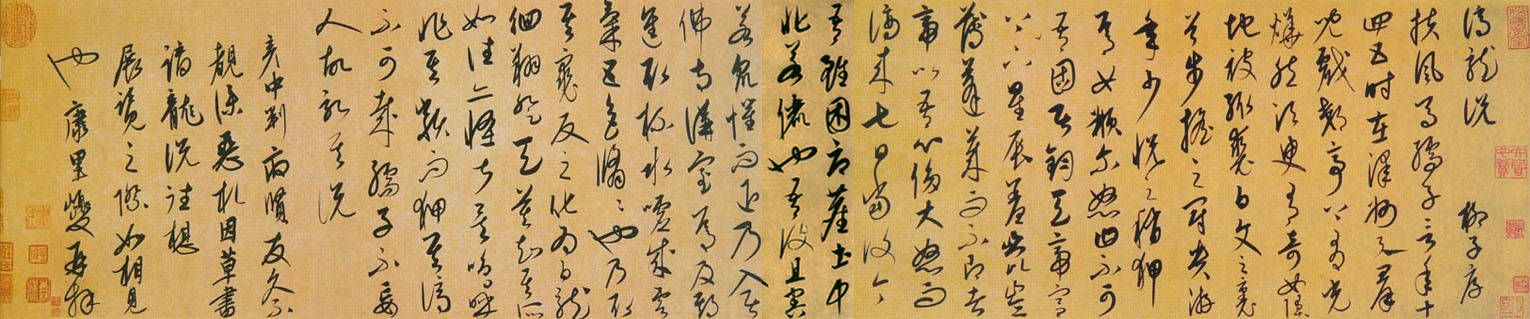 謫龍說 柳子厚
扶風馬孺子言年十
四五時在澤州與群
兒戲郊亭上有光
燁然須臾有奇女墜
地被緅裘白文之裏
首步搖之冠貴游
年少悅之稍狎
焉女頩爾怒曰不可
吾固居鈞天帝宮
下上星辰羞崑崙
薄蓬萊而不即者
帝以吾心侈大怒而
謫來七日當復今
吾雖困辱塵土中
非若儷也吾復且害
若眾懼而退乃入居
佛寺講室焉及期
進取杯水噓成雲
氣五色翛翛也乃取
其裘反之化為白龍
徊翔登天莫知其所
如往亦怪甚矣嗚呼
非其類而狎其謫
不可哉孺子不妄
人故記其說
彥中判府賢友久不
覩深惡札因草書
謫龍說往想
展覽之際如相見
也 康里巎再拜